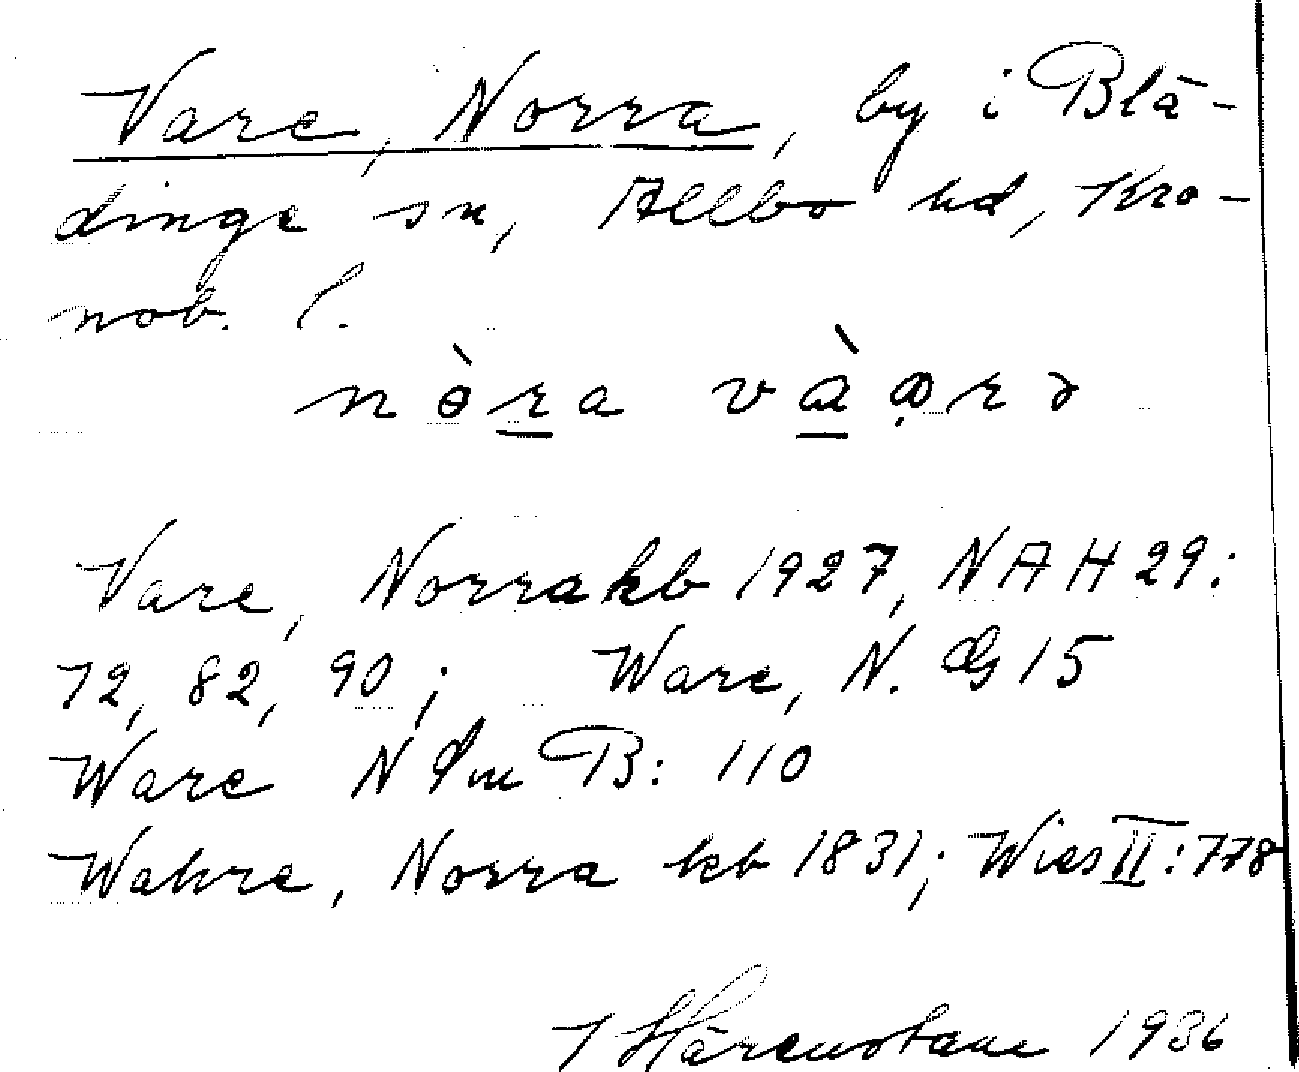 Vare, Norra, by i Blä-
dinge sn, Allbo hd, Kro-
nob. l.
nòra vàꭤrə
Vare, Norra kb 1927, NAH 29:
72, 82, 90; Ware, N. GG 15
Ware N Jm B: 110
Wahre, Norra kb 1831; Wies II: 778
1936